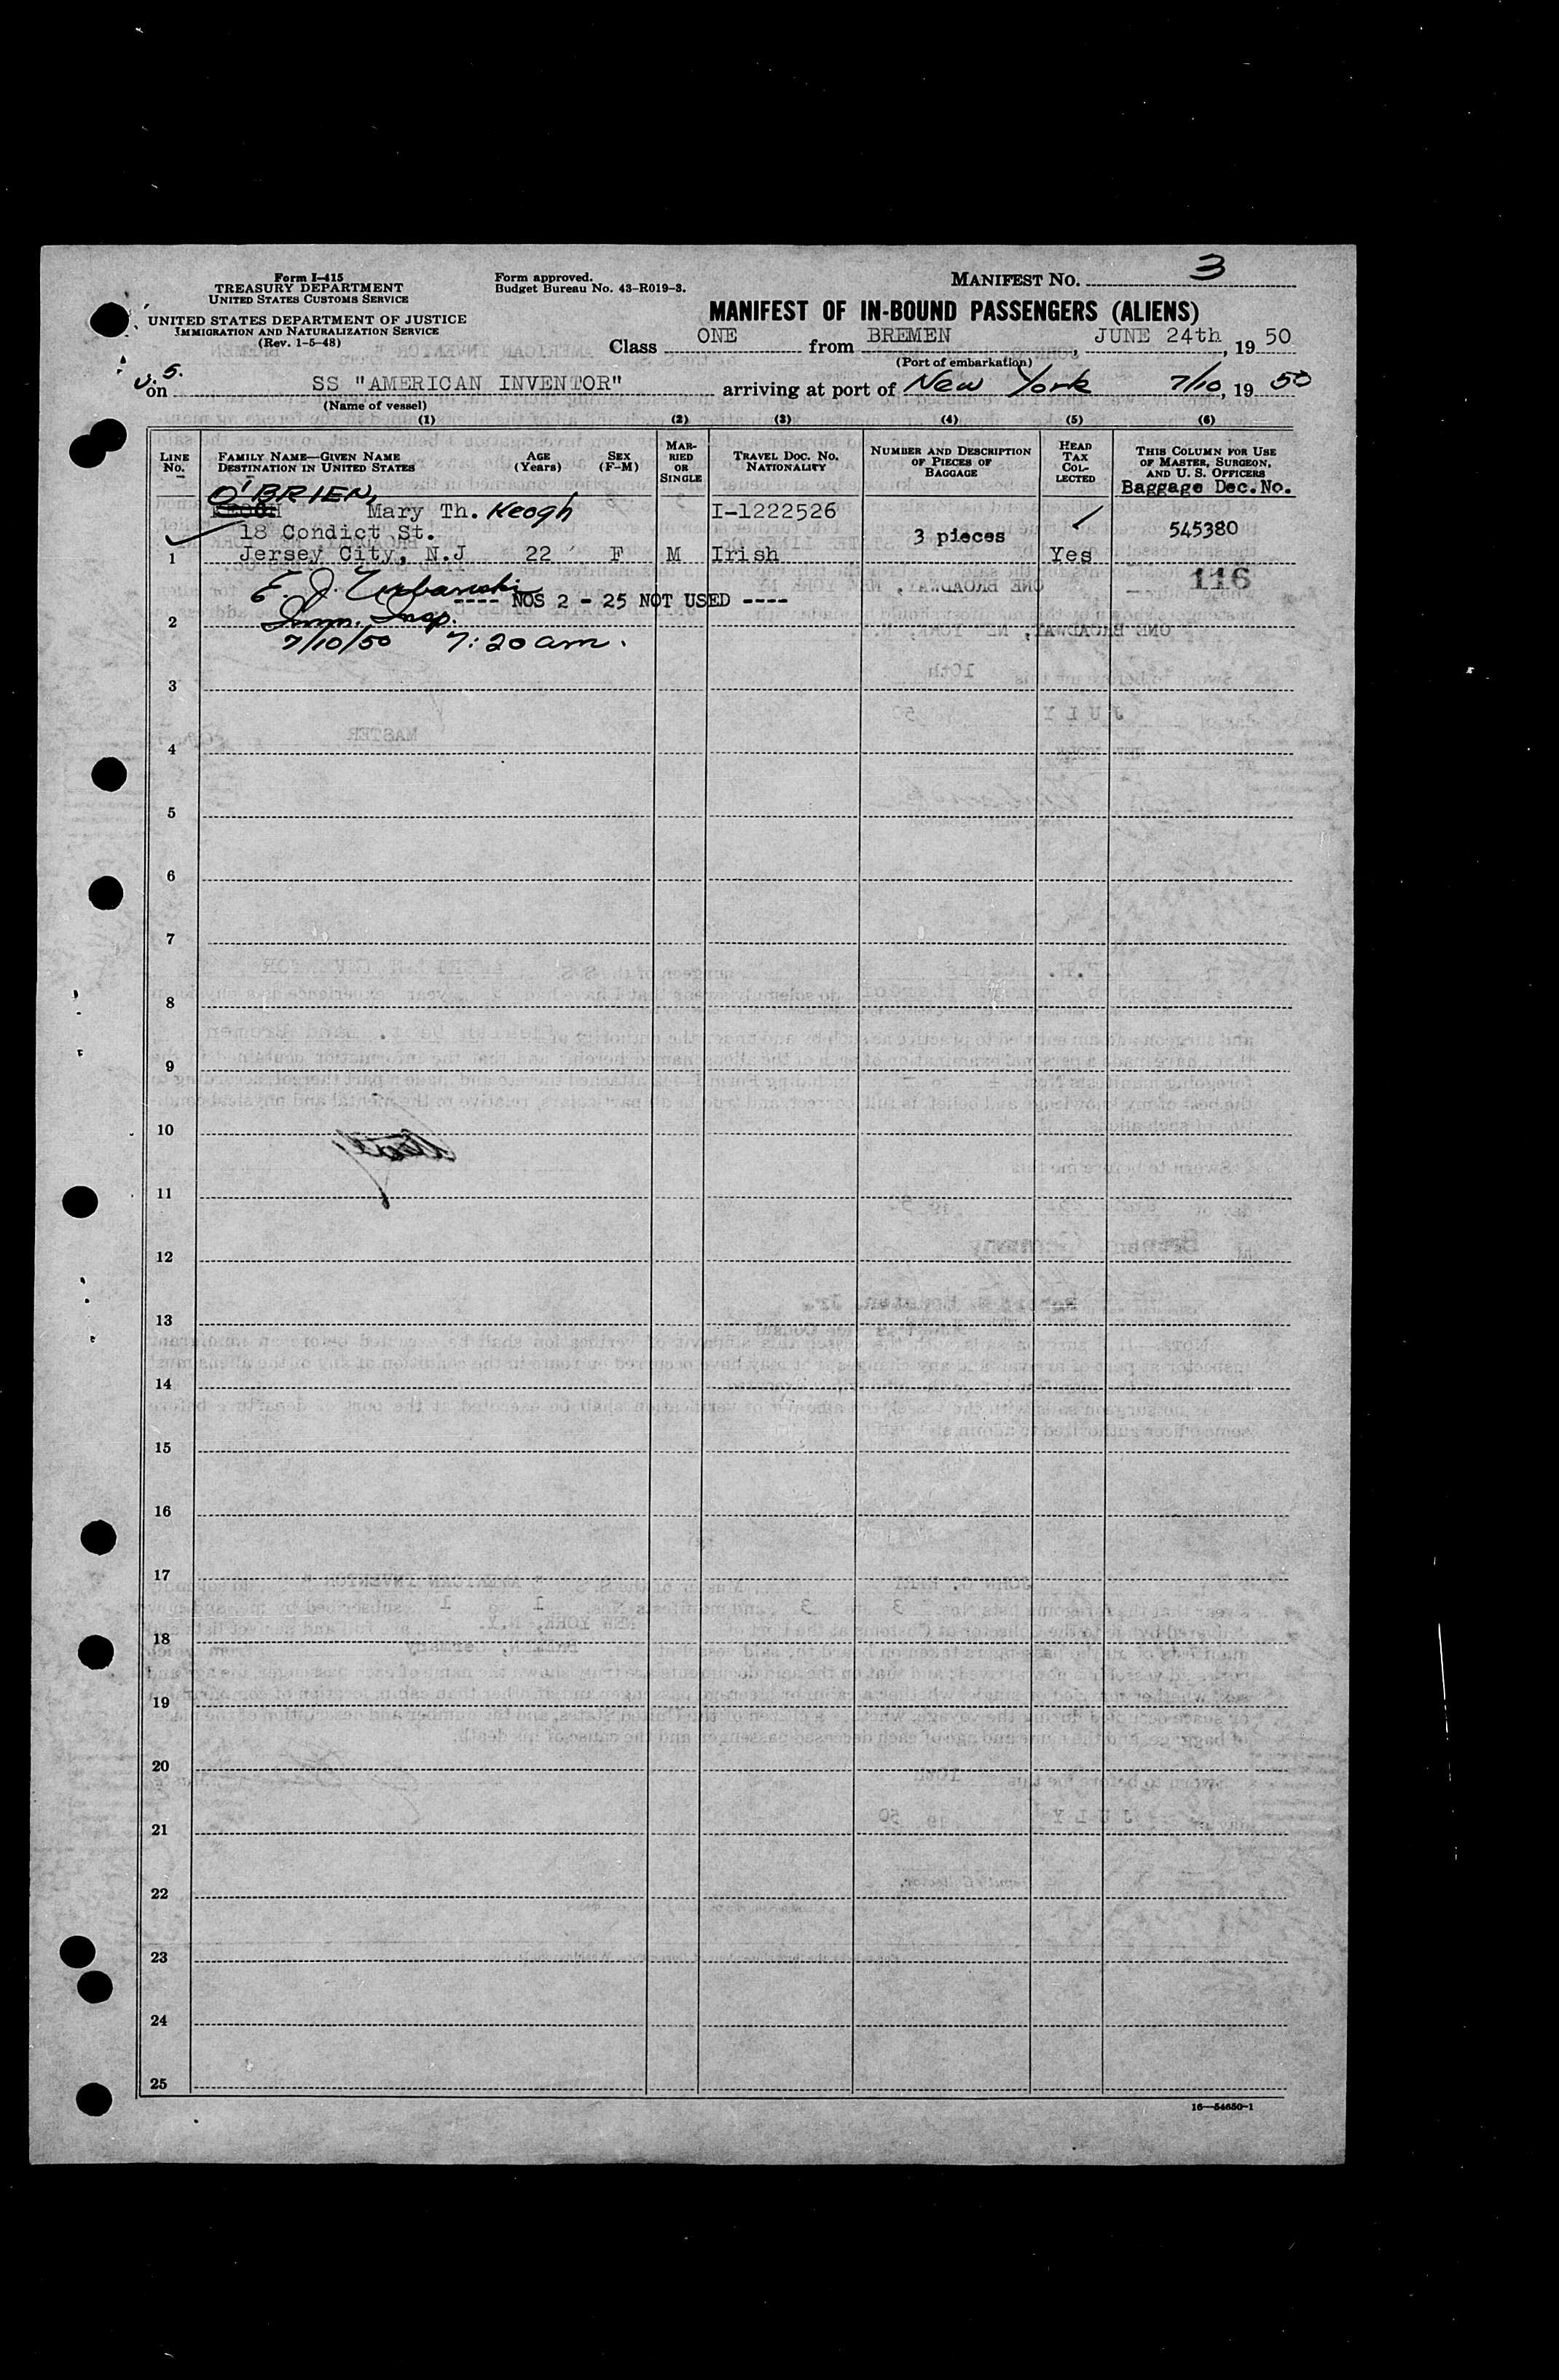 Form I-415
TREASURY DEPARTMENT
UNITED STATES CUSTOMS SERVICE
UNITED STATES DEPARTMENT OF JUSTICE
IMMIGRATION AND NATURALIZATION SERVICE
(Rev. 1-5-48)
Form approved.
Budget Bureau No. 43-R019-3.
MANIFEST NO. 3
MANIFEST OF IN-BOUND PASSENGERS (ALIENS)
Class ONE from BREMEN, JUNE 24th, 19 50
(Port of embarkation)
on SS "AMERICAN INVENTOR" arriving at port of New York 7/10, 19 50
(Name of vessel)
(1) (2) (3) (4) (5) (6)
LINE No.
FAMILY NAME—GIVEN NAME
DESTINATION IN UNITED STATES
AGE (Years)
SEX (F-M)
MARRIED OR SINGLE
TRAVEL DOC. NO.
NATIONALITY
NUMBER AND DESCRIPTION OF PIECES OF BAGGAGE
HEAD TAX COLLECTED
THIS COLUMN FOR USE OF MASTER, SURGEON, AND U. S. OFFICERS
Baggage Dec. No.
O'BRIEN,
KEOGH Mary Th. Keogh I-1222526
18 Condict St. 3 pieces 545380
1 Jersey City, N.J 22 F M Irish Yes
116
E. J. Urbanski
---- NOS 2 - 25 NOT USED ----
2 Imm. Insp.
7/10/50 7:20 am.
3
4
5
6
7
8
9
10
11
12
13
14
15
16
17
18
19
20
21
22
23
24
25
16—54650-1